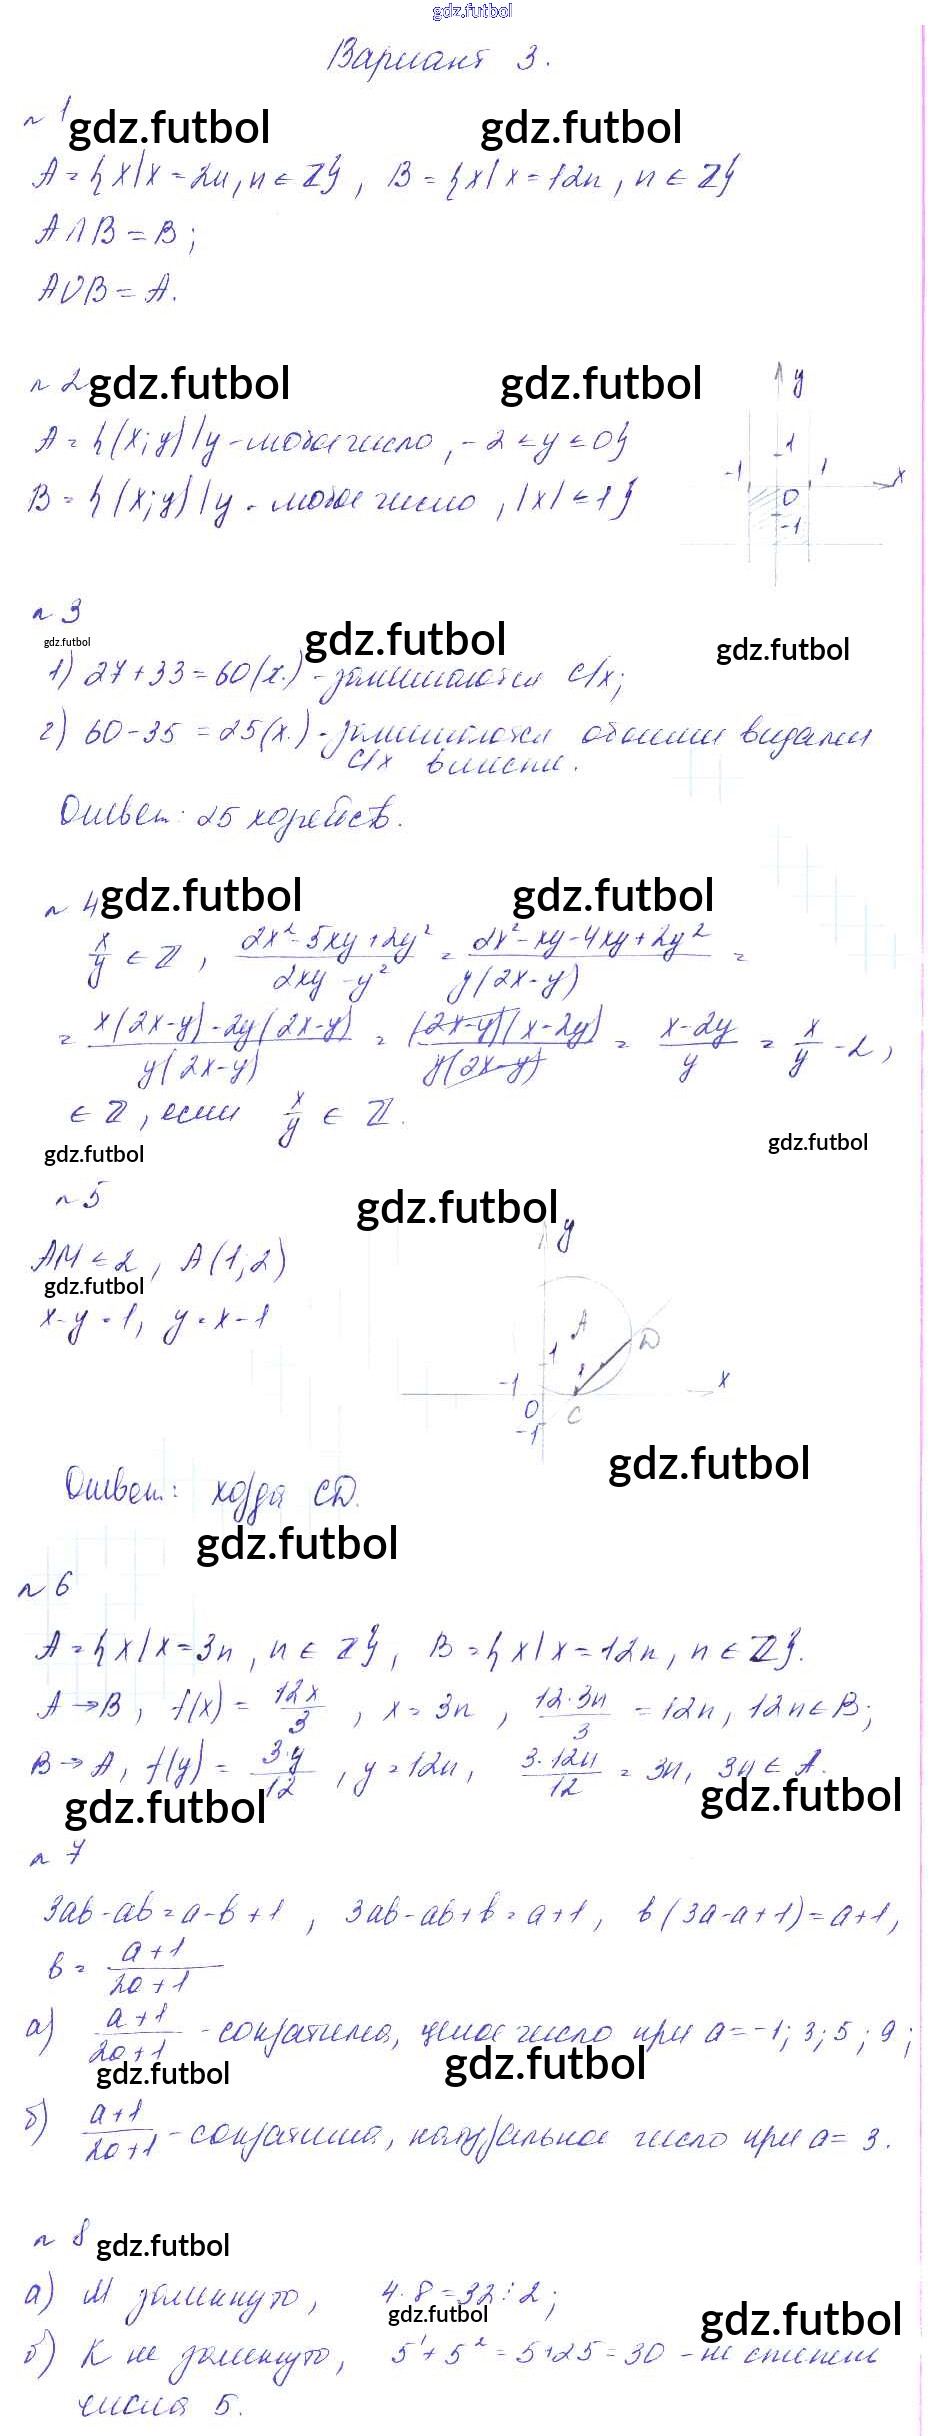 gdz.futbol
Вариант 3.
№ 1 gdz.futbol gdz.futbol
A = {x/x = 2n, n ∈ Z}, B = {x/x = 12n, n ∈ Z}
A∩B = B;
A∪B = A.
№ 2 gdz.futbol gdz.futbol
y
A = {(x;y)/y - любое число, -2 ≤ y ≤ 0}
B = {(x;y)/y - любое число, |x| ≤ 1}
1
-1 1 x
0
-1
№ 3
gdz.futbol gdz.futbol gdz.futbol
1) 27 + 33 = 60 (х.) - занимаются с/х;
2) 60 - 35 = 25 (х.) - занимаются обоими видами
с/х вместе.
Ответ: 25 хозяйств.
№ 4 gdz.futbol gdz.futbol
x/y ∈ Z, (2x² - 5xy + 2y²)/(2xy - y²) = (2x² - xy - 4xy + 2y²)/(y(2x - y)) =
= (x(2x-y) - 2y(2x-y))/(y(2x-y)) = ((2x-y)(x-2y))/(y(2x-y)) = (x-2y)/y = x/y - 2,
∈ Z, если x/y ∈ Z.
gdz.futbol gdz.futbol
№ 5 gdz.futbol
y
AM ≤ 2, A(1;2)
gdz.futbol
x - y = 1, y = x - 1
A
D
1
-1 x
0 C
-1
gdz.futbol
Ответ: хорда CD.
gdz.futbol
№ 6
A = {x/x = 3n, n ∈ Z}, B = {x/x = 12n, n ∈ Z}.
A → B, f(x) = 12x/3, x = 3n, 12·3n/3 = 12n, 12n ∈ B;
B → A, f(y) = 3·y/12, y = 12n, 3·12n/12 = 3n, 3n ∈ A.
gdz.futbol gdz.futbol
№ 7
3ab - ab = a - b + 1, 3ab - ab + b = a + 1, b(3a - a + 1) = a + 1,
b = (a+1)/(2a+1)
а) (a+1)/(2a+1) - сократима, целое число при a = -1; 3; 5; 9;
gdz.futbol gdz.futbol
б) (a+1)/(2a+1) - сократима, натуральное число при a = 3.
№ 8 gdz.futbol
а) M замкнуто, 4·8 = 32 : 2;
gdz.futbol gdz.futbol
б) K не замкнуто, 5¹ + 5² = 5 + 25 = 30 - не степень
числа 5.